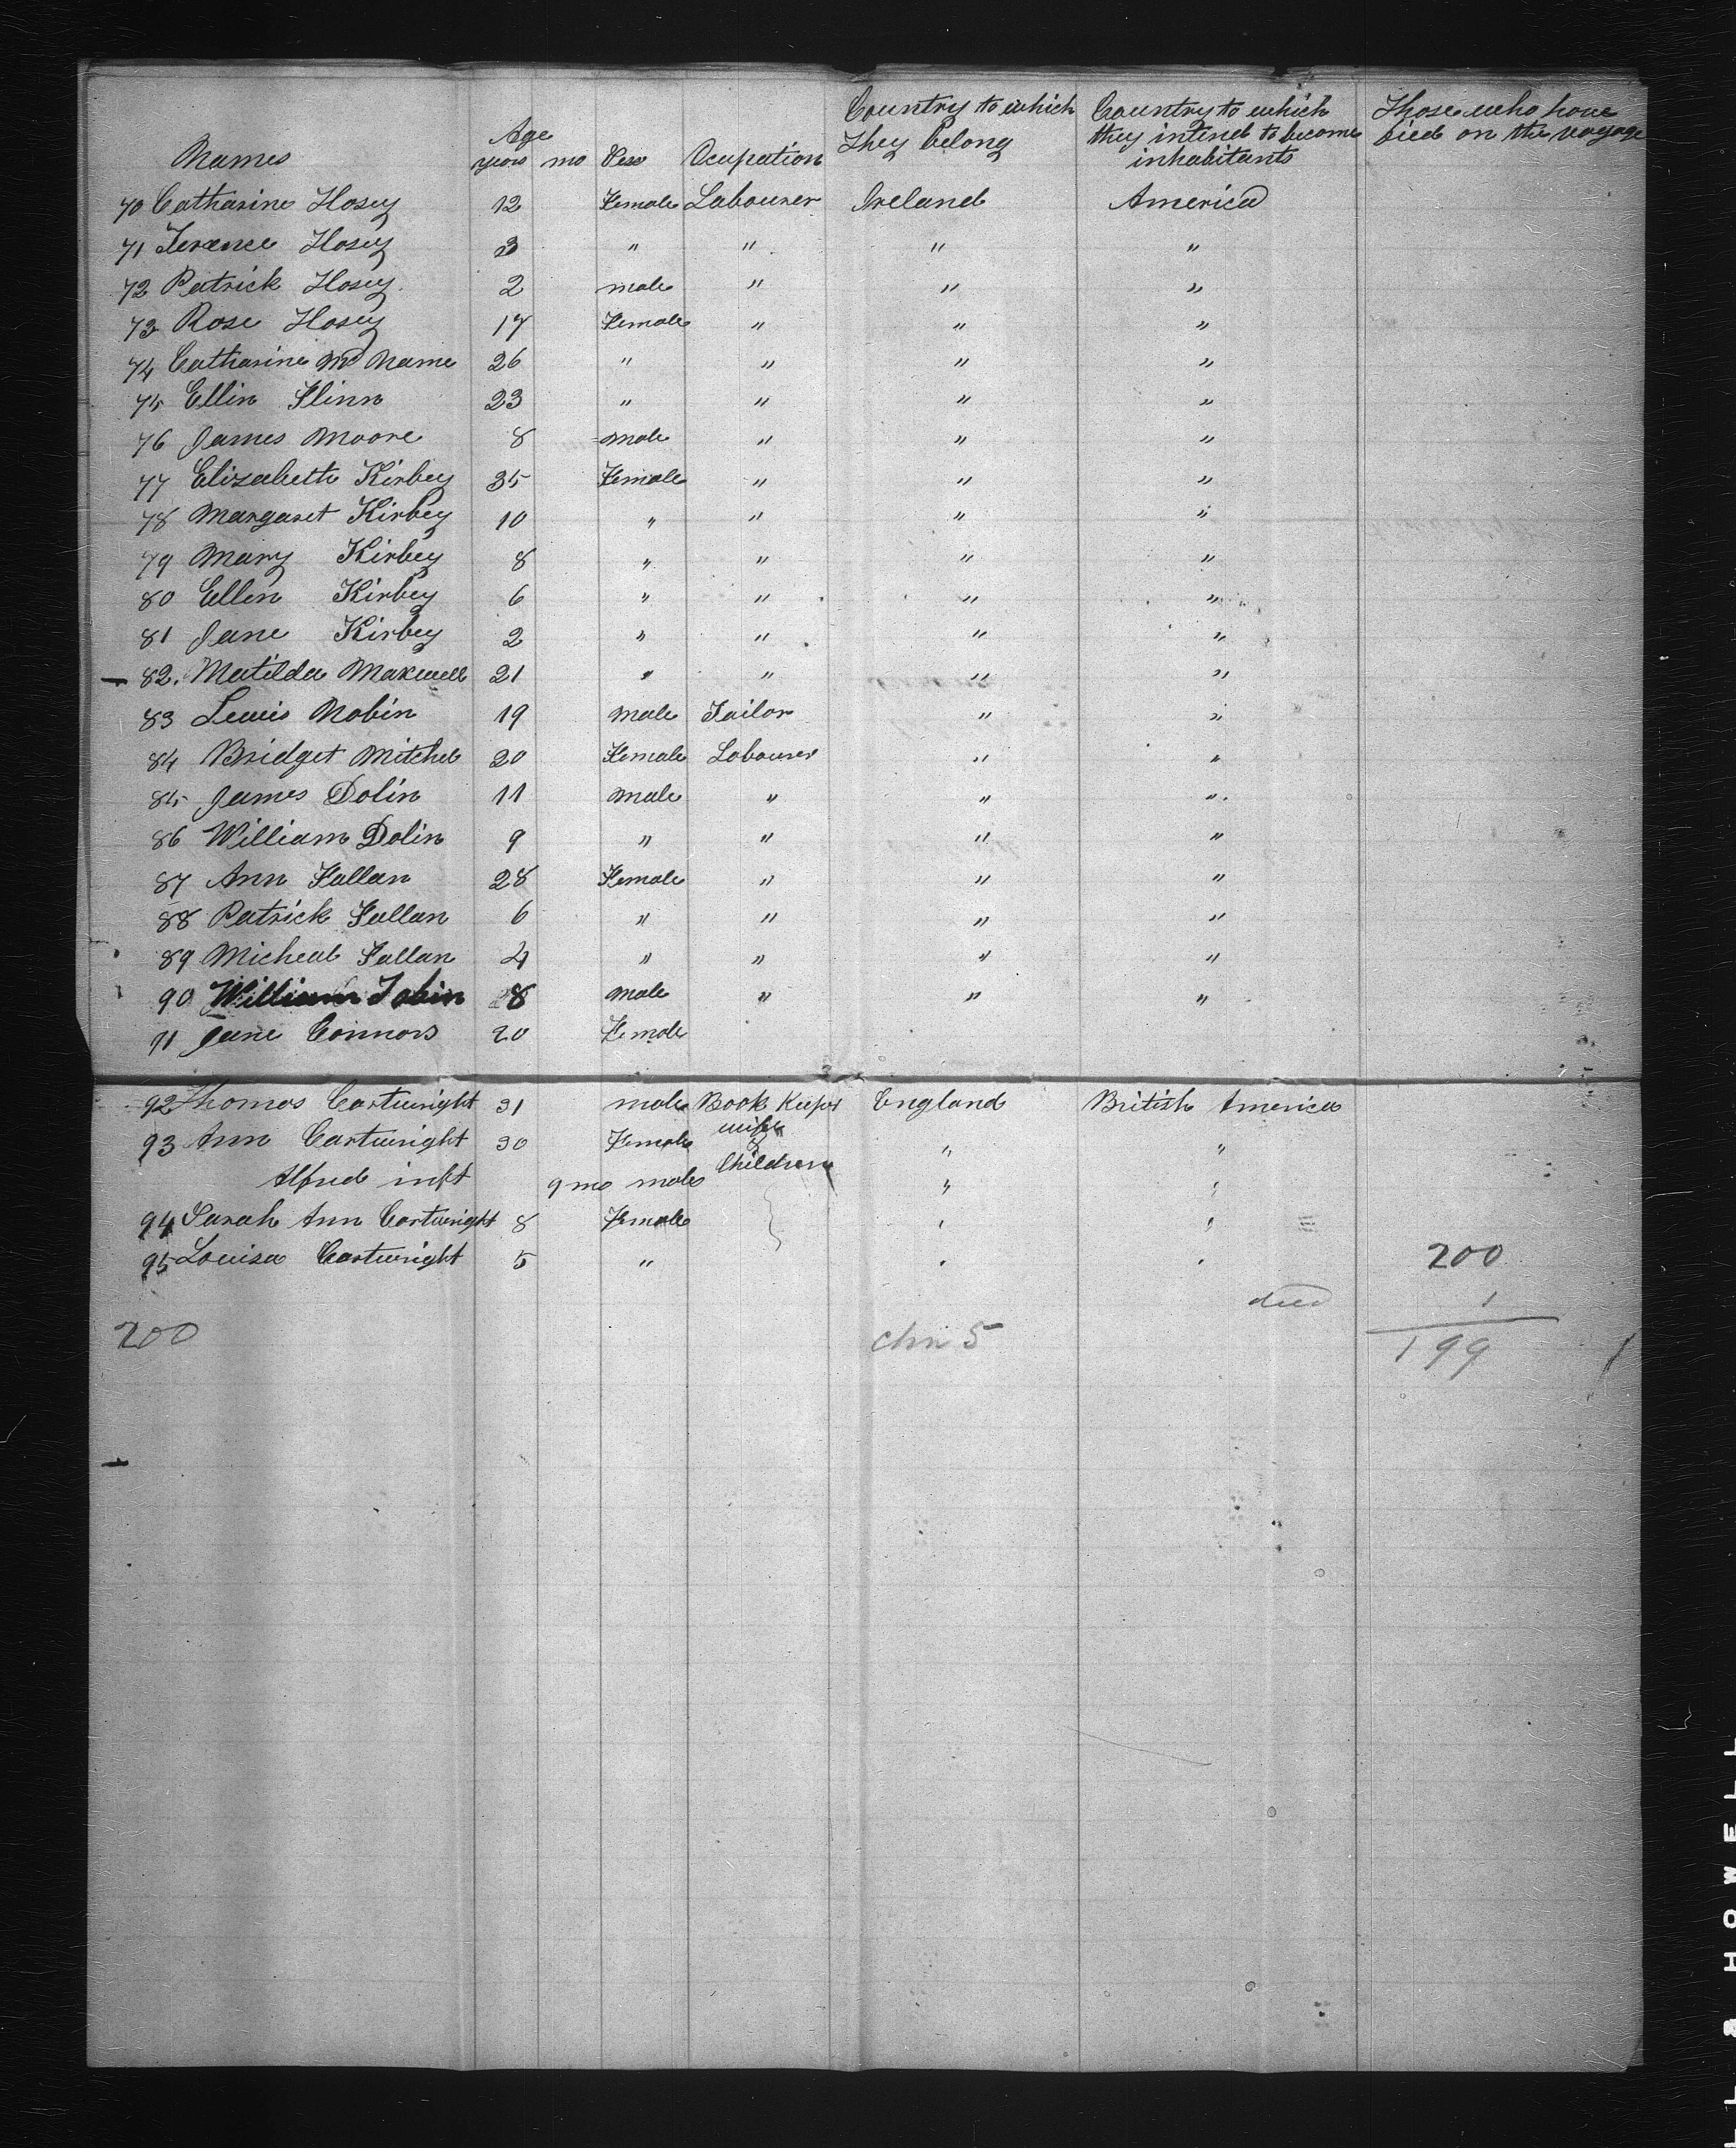 Names Age years mo Sex Ocupation Country to which They belong Country to which they intend to become inhabitants Those who have died on the voyage
70 Catharine Hosey 12 Female Labourer Ireland America
71 Terence Hosey 3 " " " "
72 Patrick Hosey 2 male " " "
73 Rose Hosey 17 Female " " "
74 Catharine Mc Name 26 " " " "
75 Ellin Flinn 23 " " " "
76 James Moore 8 male " " "
77 Elizabeth Kirbey 35 Female " " "
78 Margaret Kirbey 10 " " " "
79 Mary Kirbey 8 " " " "
80 Ellen Kirbey 6 " " " "
81 Jane Kirbey 2 " " " "
82. Matilda Maxwell 21 " " " "
83 Lewis Nobin 19 male Tailor " "
84 Bridget Mitchel 20 Female Labourer " "
85 James Dolin 11 male " " "
86 William Dolin 9 " " " "
87 Ann Fallan 28 Female " " "
88 Patrick Fallan 6 " " " "
89 Micheal Fallan 4 " " " "
90 William Tobin 8 male " " "
91 Jane Connors 20 Female
92 Thomas Cartwright 31 male Book Keeper England British America
93 Ann Cartwright 30 Female wife & " "
Alfred inft 9 mo male Children " "
94 Sarah Ann Cartwright 8 Female " "
95 Louisa Cartwright 5 " " "
200
died 1
200 chn 5 199
HOWELL